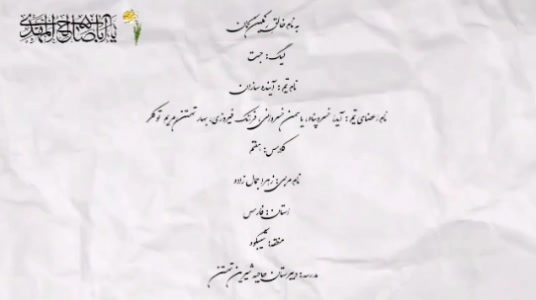 یا اباصالح المهدی
به نام خالق رنگین کمان
لیگ: جت
نام تیم: آینده سازان
نام اعضای تیم: آیدا خسروپناه، یاسمن خسروانی، فرناک فیروزی، بهار تهمتن، مریم توکلی
کلاس: هفتم
نام مربی: زهرا جمال زاده
استان: فارس
منطقه: شیبکوه
مدرسه: دبیرستان حاجیه شیرین تهمتن